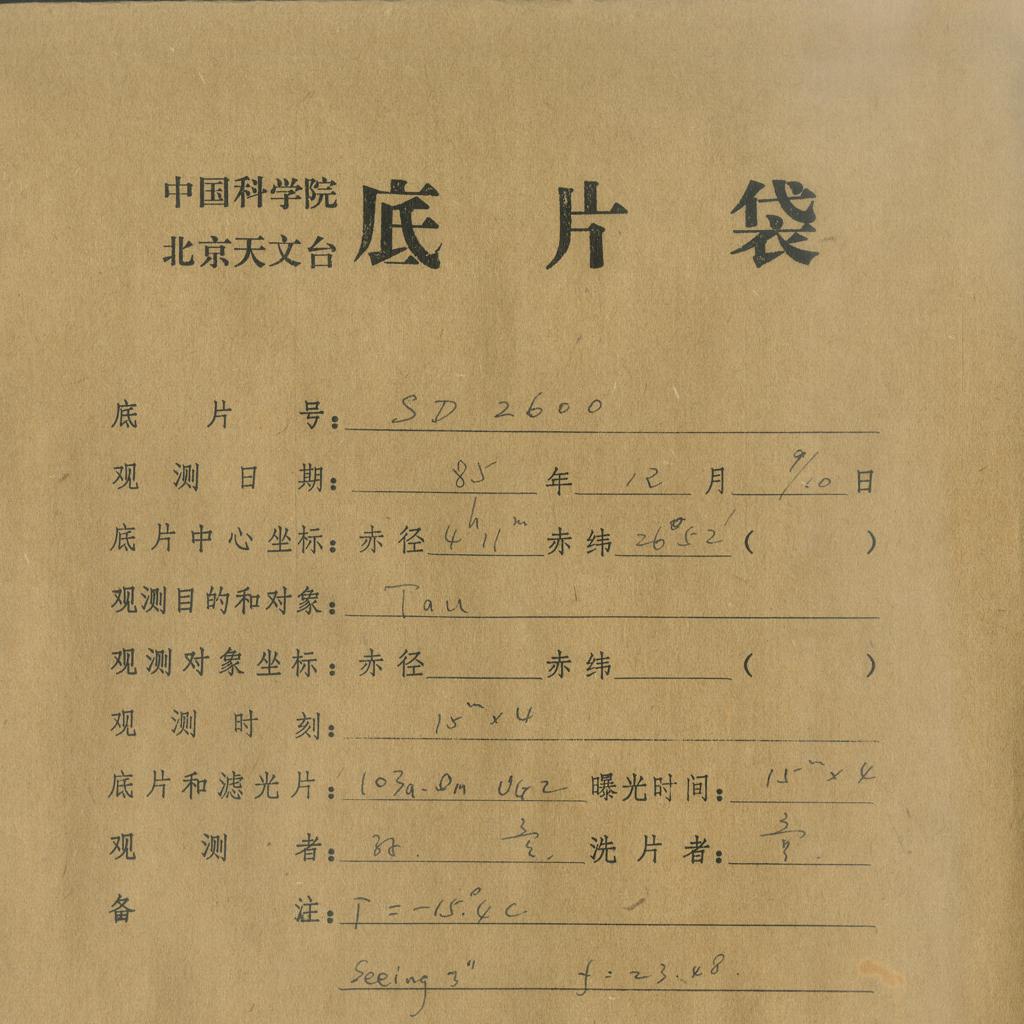 中国科学院
北京天文台
底片袋
底片号：SD 2600
观测日期：85年12月9/10日
底片中心坐标：赤径4ʰ11ᵐ赤纬26°52′（ ）
观测目的和对象：Tau
观测对象坐标：赤径 赤纬 （ ）
观测时刻：15ᵐ×4
底片和滤光片：103a-Om UG2 曝光时间：15ᵐ×4
观测者： 洗片者：
备注：T=-15°.4C
Seeing 3″ f=23.48.